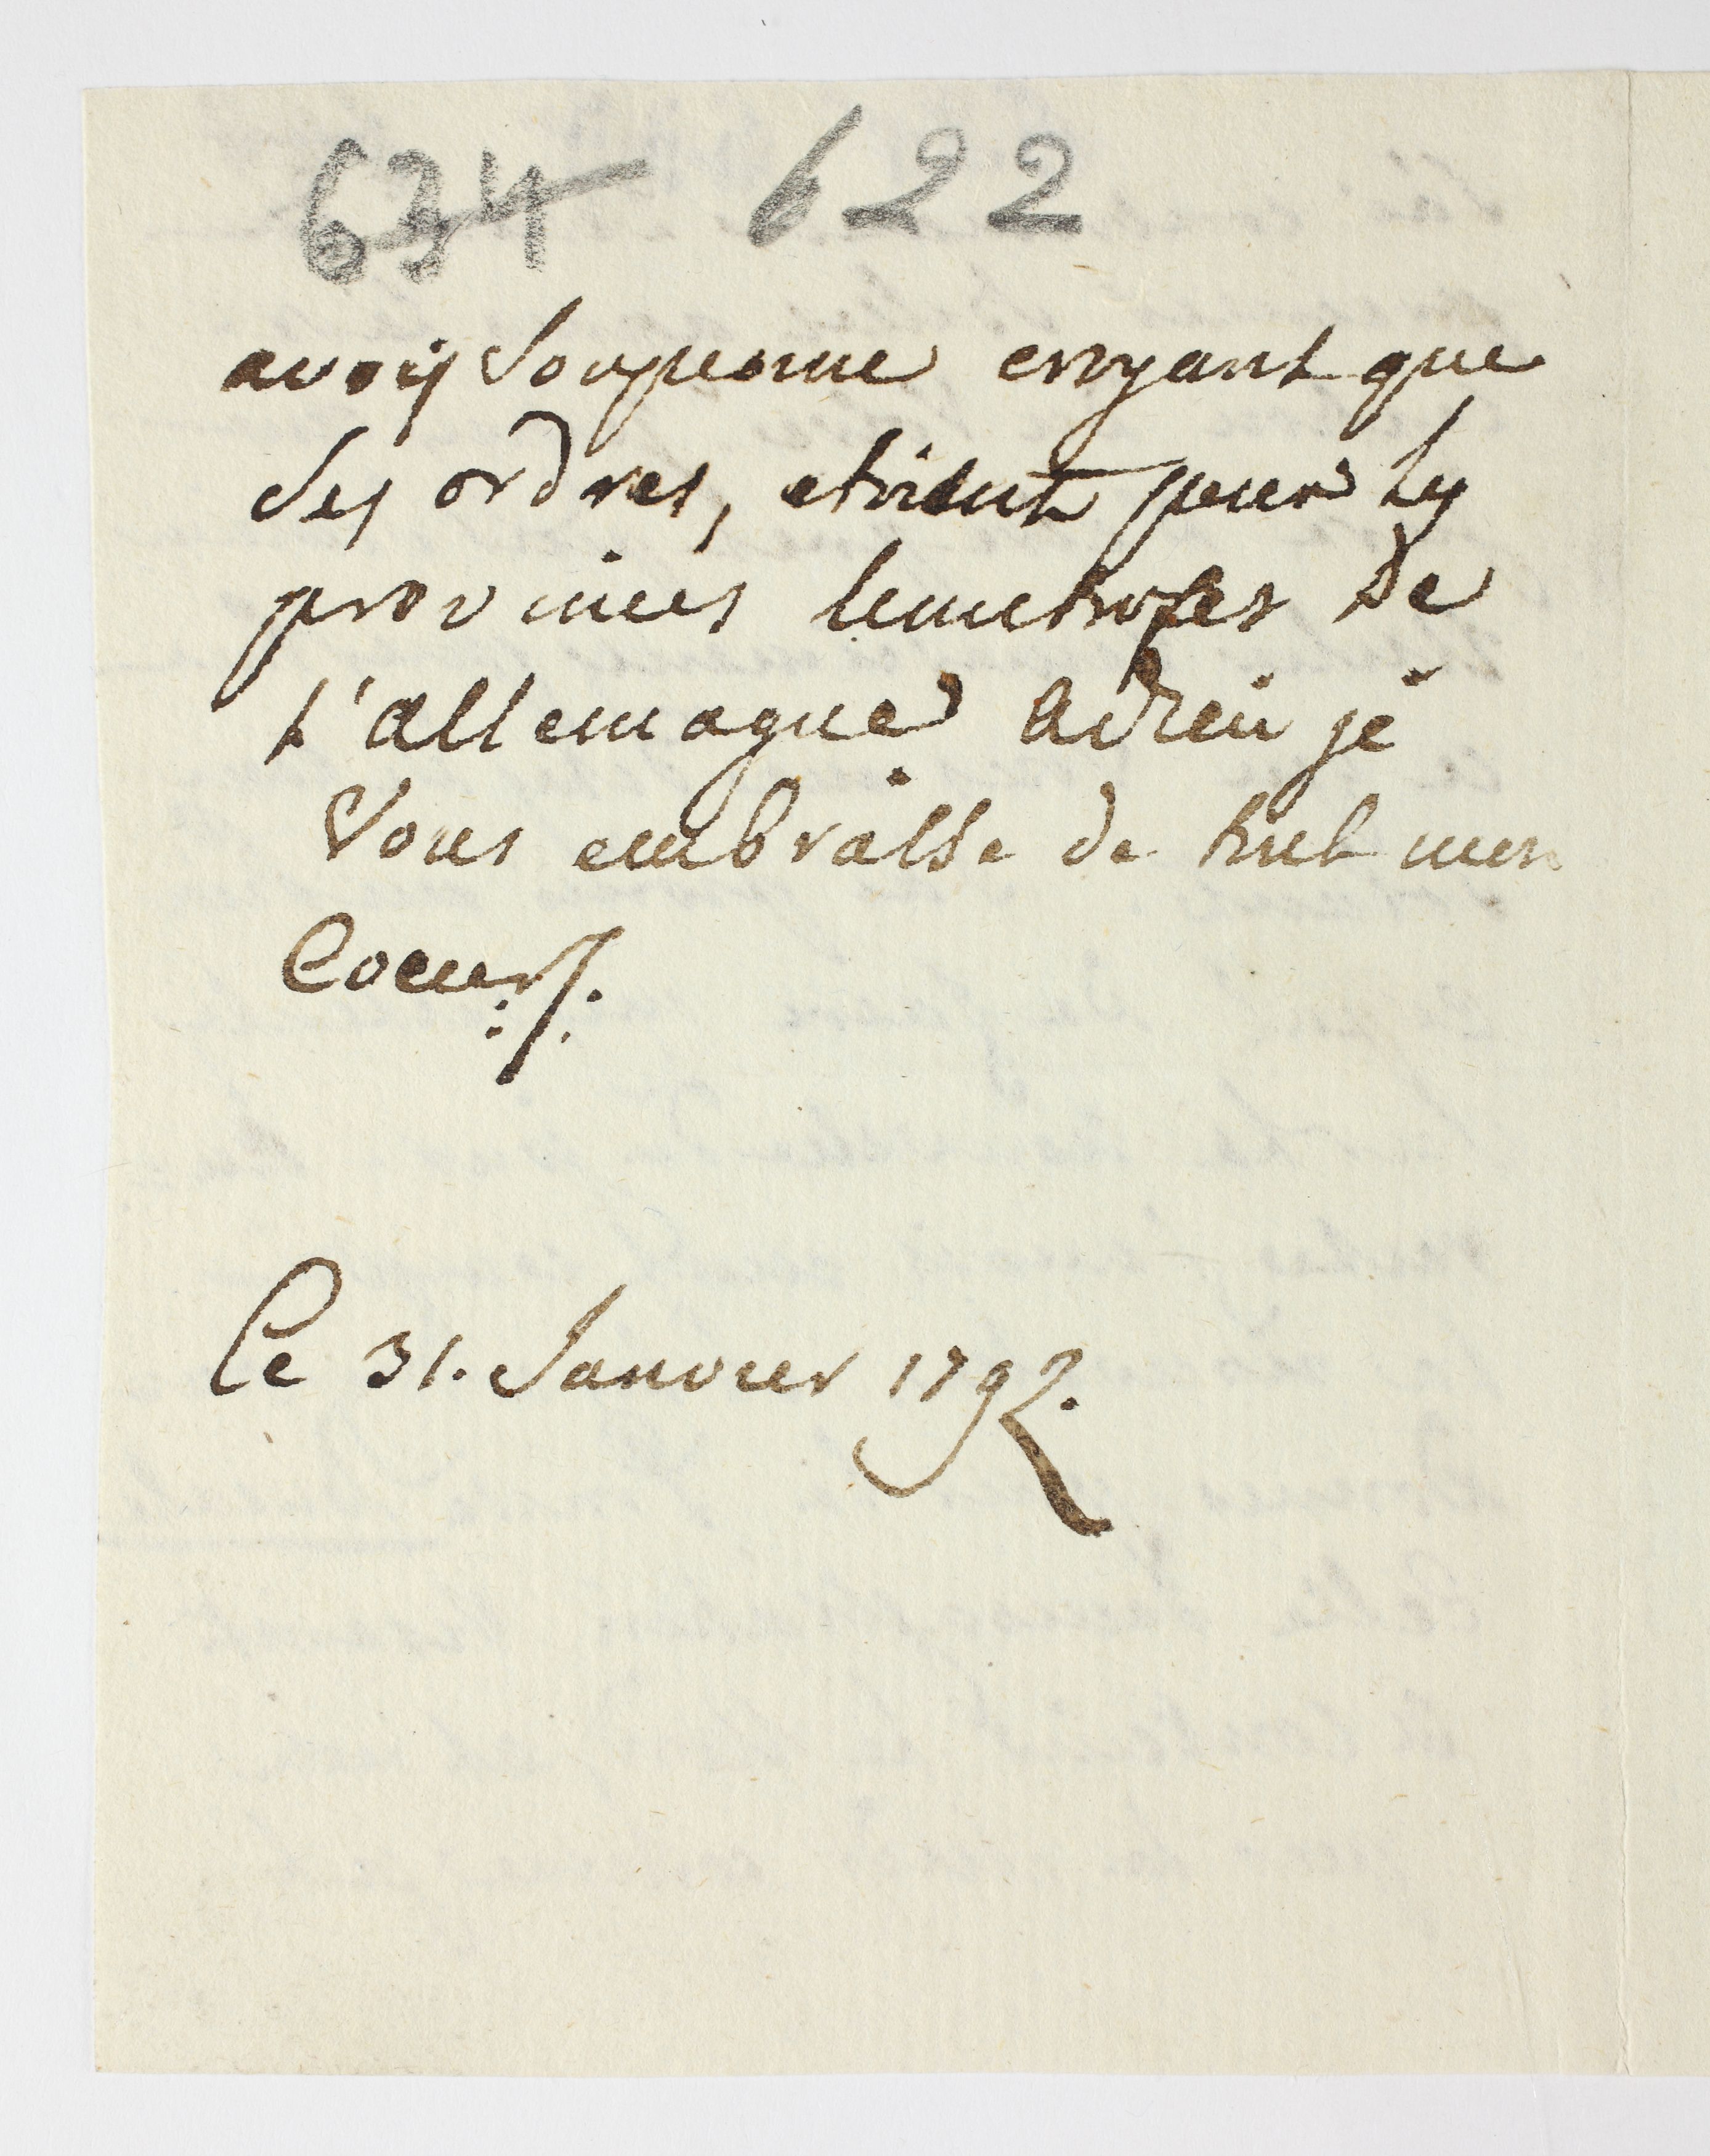 634 622
avois soupconne croyant que
ses ordres, etoient pour les
provinces limitrofes de
l'allemagne adieu je
Vous embrasse de tout mon
Coeur/.
Ce 31. Janvier 1792.